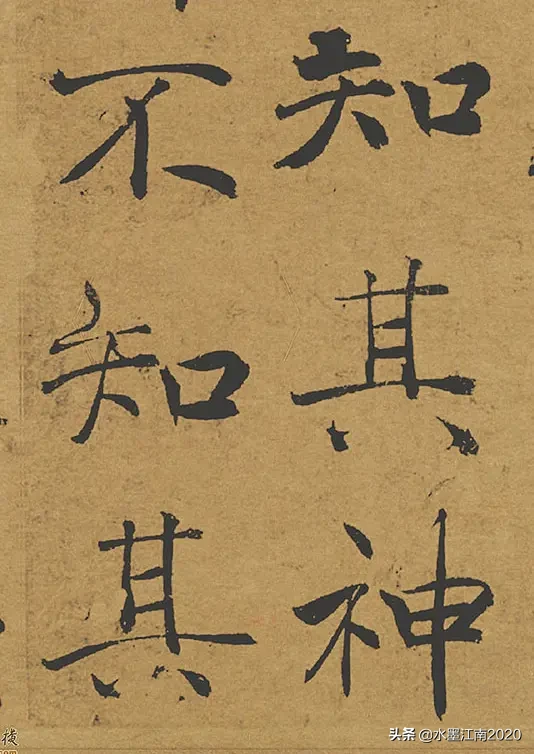 知其神
不知其
头条 @水墨江南2020